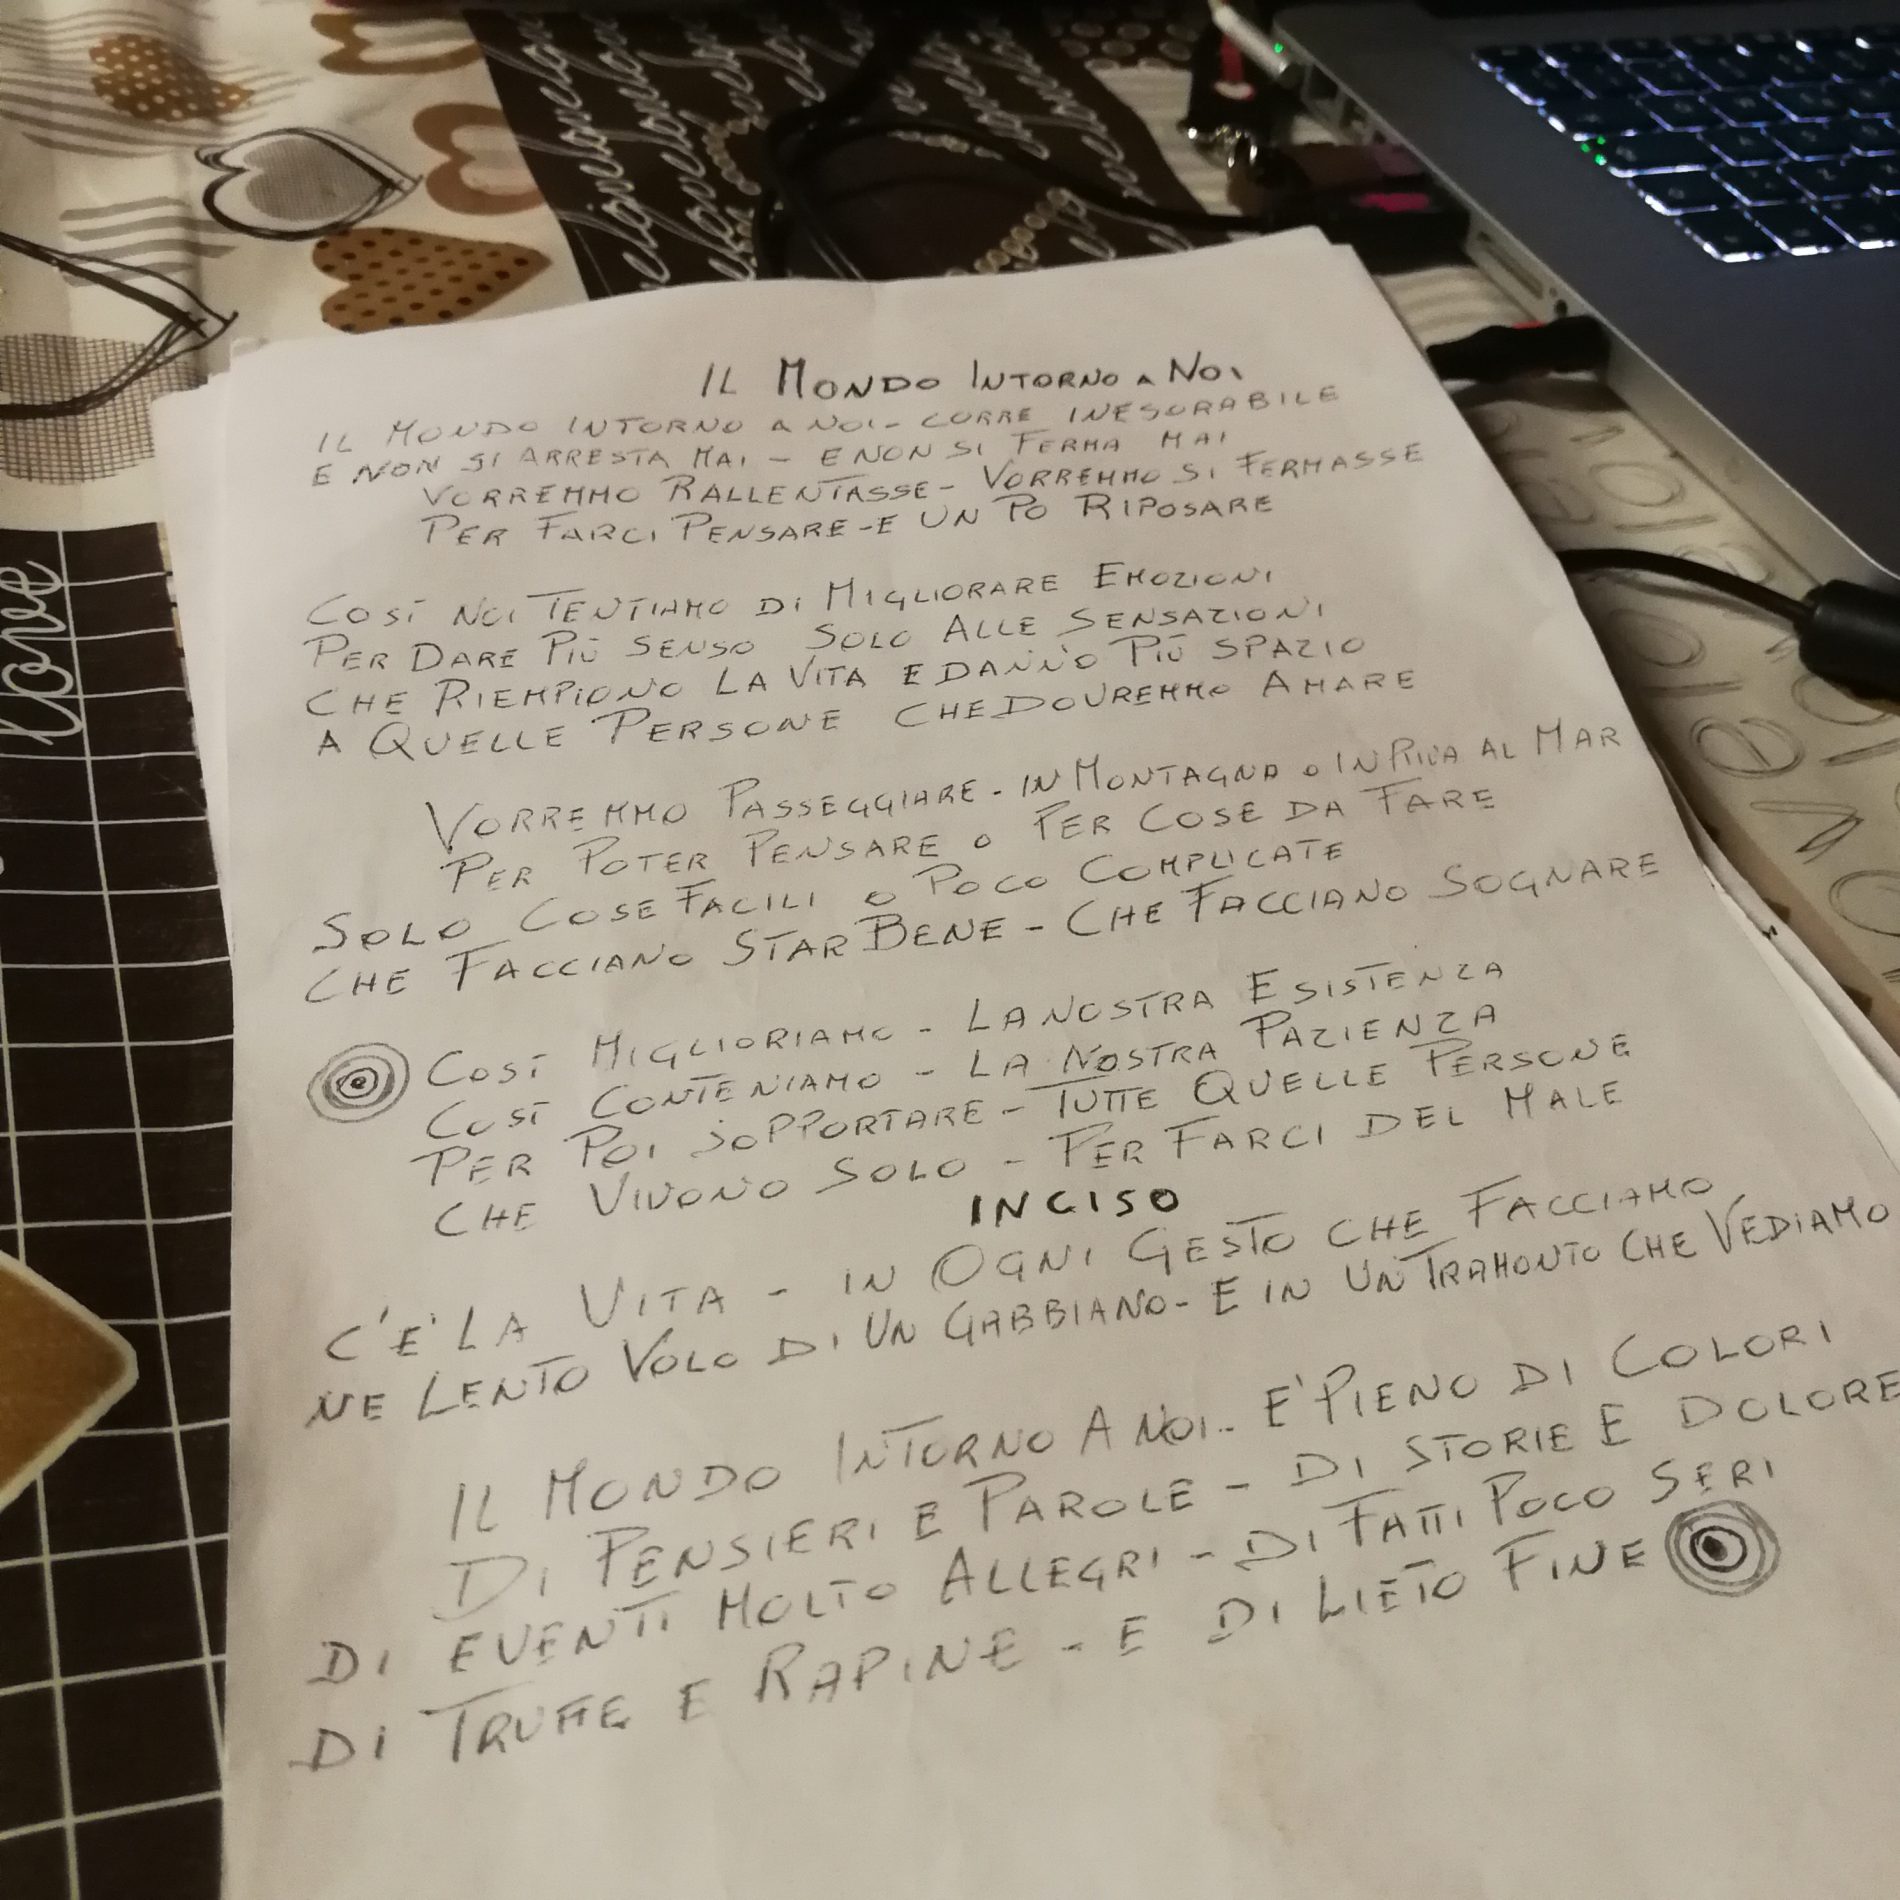 IL MONDO INTORNO A NOI
IL MONDO INTORNO A NOI - CORRE INESORABILE
E NON SI ARRESTA MAI - E NON SI FERMA MAI
VORREMMO RALLENTASSE - VORREMMO SI FERMASSE
PER FARCI PENSARE - E UN PO RIPOSARE
COSÌ NOI TENTIAMO DI MIGLIORARE EMOZIONI
PER DARE PIÙ SENSO SOLO ALLE SENSAZIONI
CHE RIEMPIONO LA VITA E DANNO PIÙ SPAZIO
A QUELLE PERSONE CHE DOVREMMO AMARE
VORREMMO PASSEGGIARE - IN MONTAGNA O IN RIVA AL MAR
PER POTER PENSARE O PER COSE DA FARE
SOLO COSE FACILI O POCO COMPLICATE
CHE FACCIANO STAR BENE - CHE FACCIANO SOGNARE
COSÌ MIGLIORIAMO - LA NOSTRA ESISTENZA
COSÌ CONTENIAMO - LA NOSTRA PAZIENZA
PER POI SOPPORTARE - TUTTE QUELLE PERSONE
CHE VIVONO SOLO - PER FARCI DEL MALE
INCISO
C'È LA VITA - IN OGNI GESTO CHE FACCIAMO
NE LENTO VOLO DI UN GABBIANO - E IN UN TRAMONTO CHE VEDIAMO
IL MONDO INTORNO A NOI - E' PIENO DI COLORI
DI PENSIERI E PAROLE - DI STORIE E DOLORE
DI EVENTI MOLTO ALLEGRI - DI FATTI POCO SERI
DI TRUFFE E RAPINE - E DI LIETO FINE
love